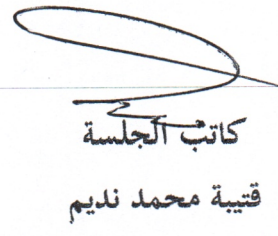 كاتب الجلسة
قتيبة محمد نديم